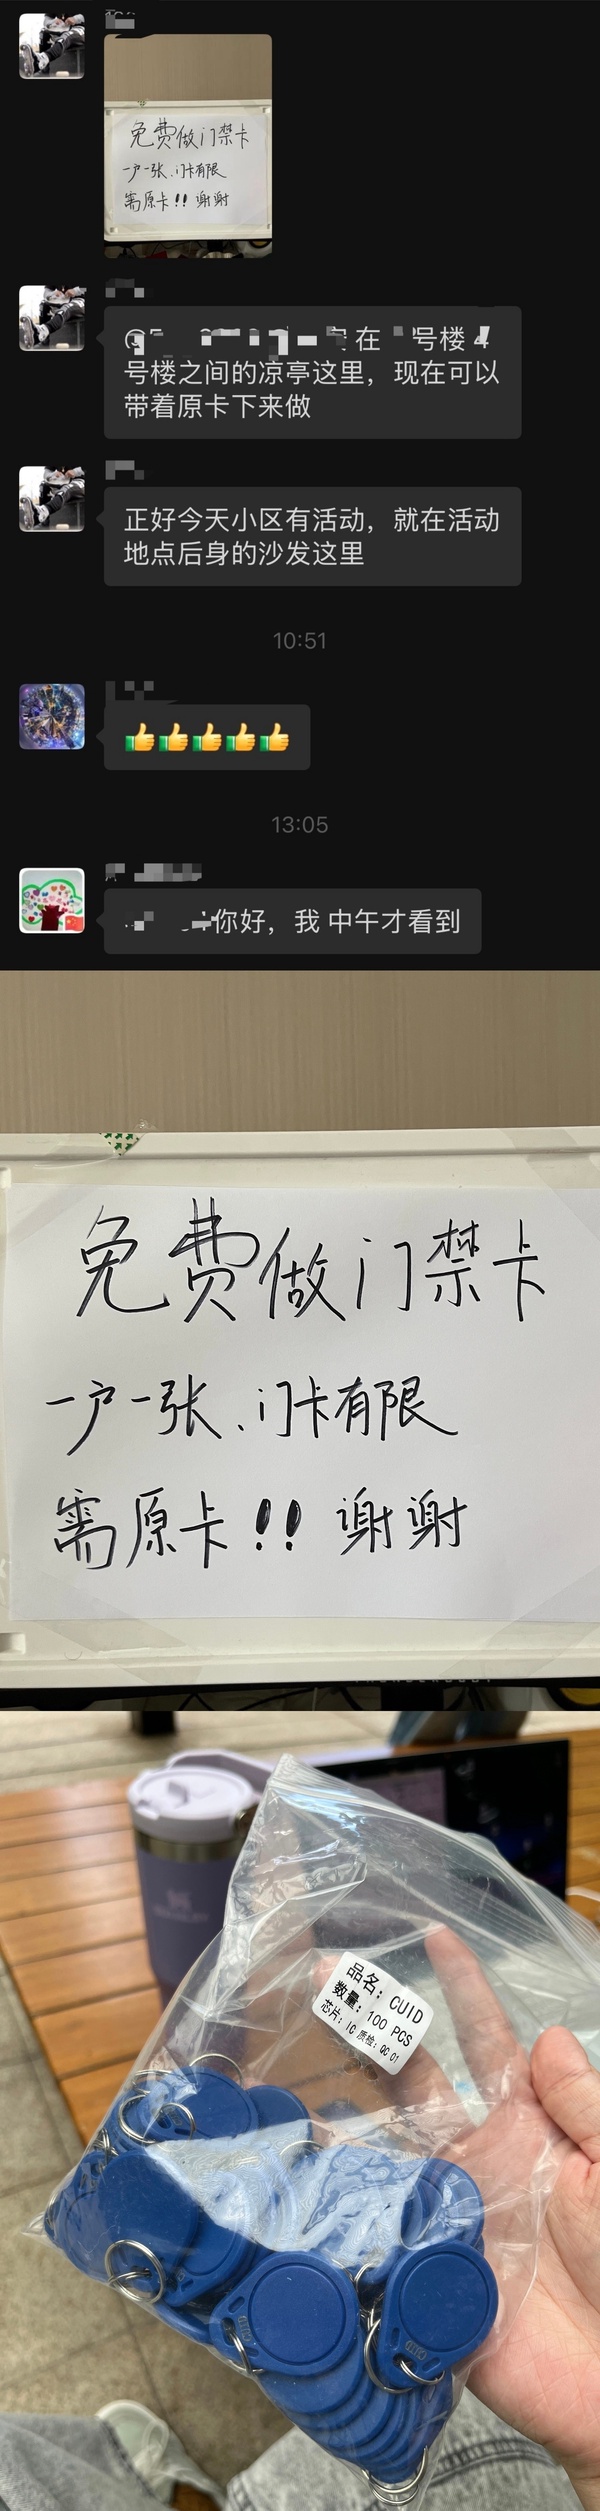 免费做门禁卡
一户一张、门卡有限
需原卡!! 谢谢
在 号楼 4
号楼之间的凉亭这里，现在可以
带着原卡下来做
正好今天小区有活动，就在活动
地点后身的沙发这里
10:51
13:05
你好，我 中午才看到
免费做门禁卡
一户一张、门卡有限
需原卡!! 谢谢
品名：CUID
数量：100 PCS
芯片：IC 质检：QC 01
CUID
CUID